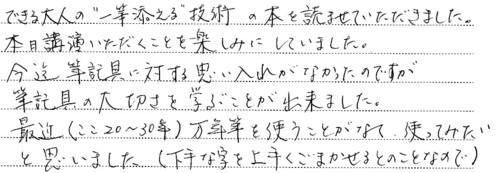 できる大人の"一筆添える"技術 の本を読ませていただきました。
本日講演いただくことを楽しみにしていました。
今迄 筆記具に対する思い入れがなかったのですが
筆記具の大切さを学ぶことが出来ました。
最近(ここ20〜30年)万年筆を使うことがなく 使ってみたい
と思いました (下手な字を上手くごまかせるとのことなので)